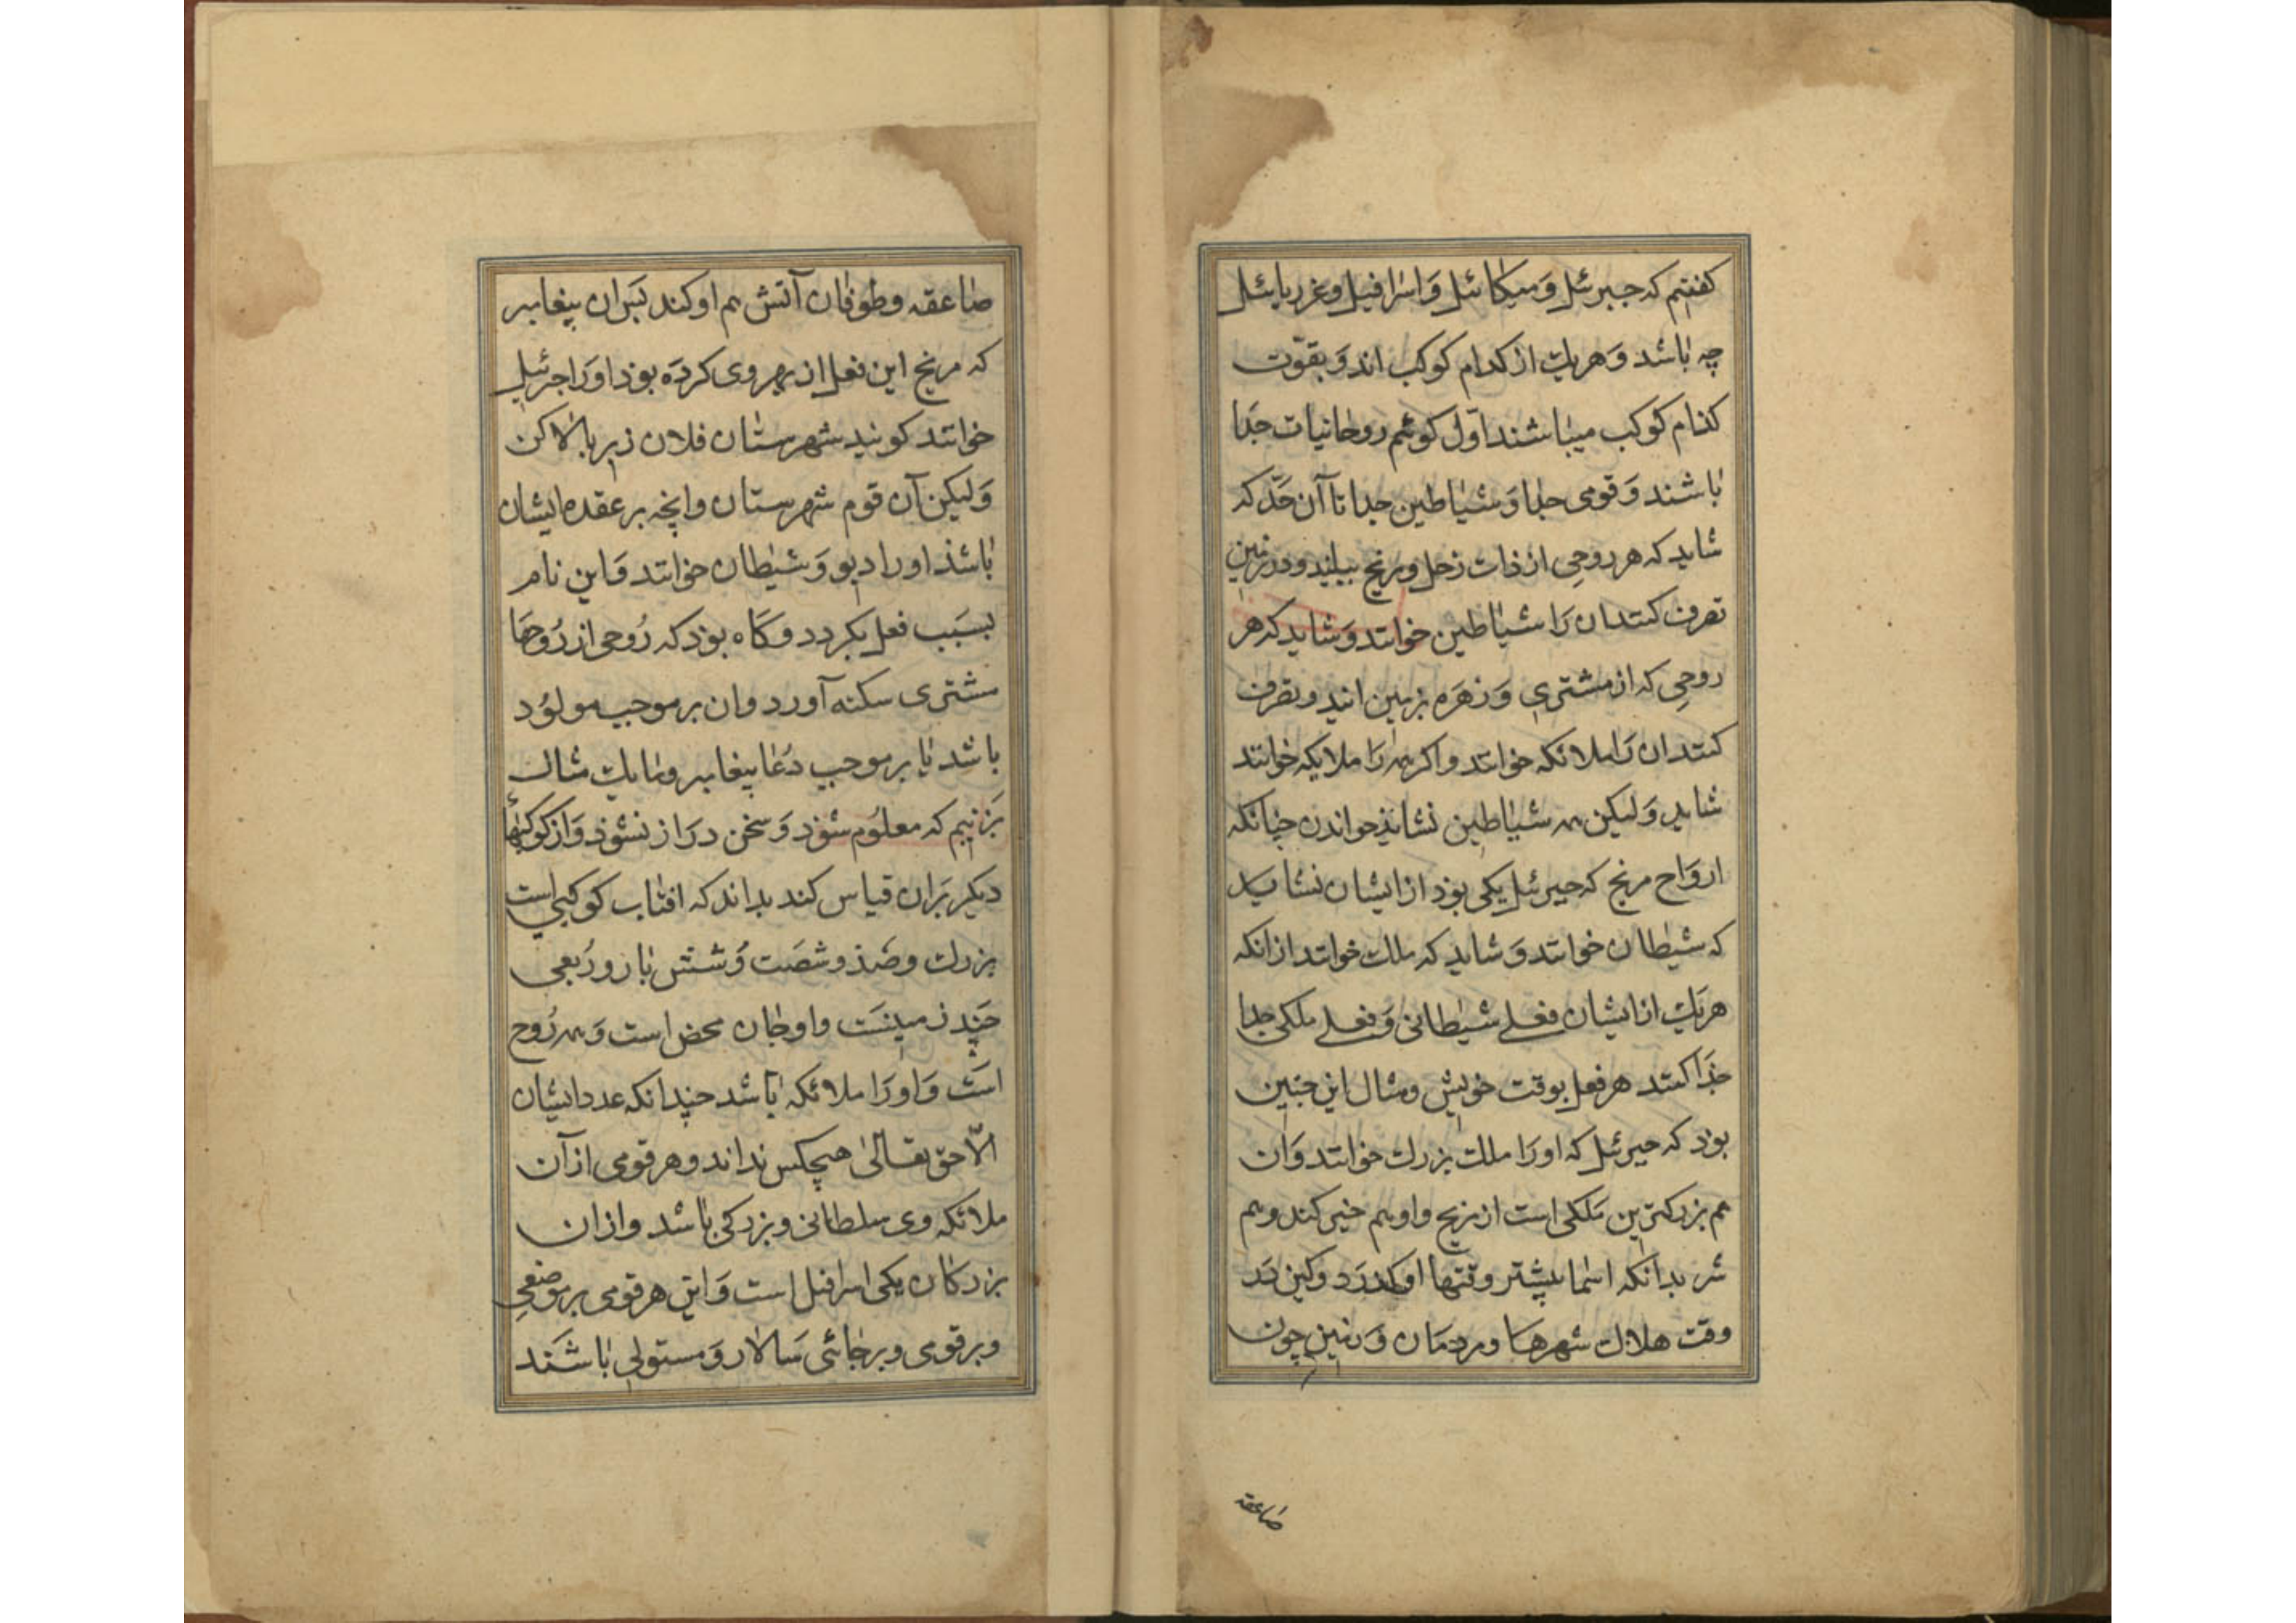 کفتیم که جبرئیل و میکائیل و اسرافیل و عزربائیل
چه باشد و هریک از کدام کوکب اند و بقوّت
کذام کوکب میباشند اوّل کوئیم روحانیات جدا
باشند و قومی جدا و شیاطین جدا تا آن حدّ که
شاید که هر روحی از ذات زحل و مریخ بیایند و در زمین
تصرف کنند ان را شیاطین خوانند و شاید که هر
روحی که از مشتری و زهره بزمین آیند و تصرف
کنند ان را ملائکه خوانند و اکر همه را ملایکه خوانند
شاید و لیکن همه شیاطین نشایذ خواندن چنانکه
ارواح مریخ که جبرئیل یکی بوذ از ایشان نشاید
که شیطان خوانند و شاید که ملک خوانند از انکه
هریک از ایشان فعلی شیطانی و فعلی ملکی جدا
جذا کنند هر فعل بوقت خویش و مثال این چنین
بوذ که جبرئیل که او را ملک بزرک خوانند و ان
هم بزرکترین ملکی است از مریخ و او هم خیر کند و هم
شر بدانکه اسما بیشتر وقتها او کذرد و کین در
وقت هلاک شهرها و مردمان و زمین چون
صاعقه
صاعقه و طوفان آتش هم او کند بس ان پیغامبر
که مریخ این فعل از بهر وی کرده بوذ او را جبرئیل
خوانند کویند شهرستان فلان زبر بالا کن
و لیکن آن قوم شهرستان وانچه بر عقده ایشان
باشذ او را دیو و شیطان خوانند و این نام
بسبب فعل بکردد و کاه بوذ که روحی از روحها
مشتری سکنه آورد و ان بر موجب مولود
باشد یا بر موجب دعا پیغامبر و ما یک مثال
بزنیم که معلوم شوذ و سخن دراز نشوذ و از کوکبها
دیکر بران قیاس کند بداند که افتاب کوکبی است
بزرک و صذ و شصت و شش بار و ربعی
چند زمینست و او جان محض است و همه روح
است و او را ملائکه باشد چندانکه عدد ایشان
الّا حق تعالی هیچکس نداند و هر قومی از آن
ملائکه وی سلطانی و بزرکی باشد و از ان
بزرکان یکی اسرافیل است و این هر قومی بر موضعی
و بر قومی و بر جائی سالار و مستولی باشند